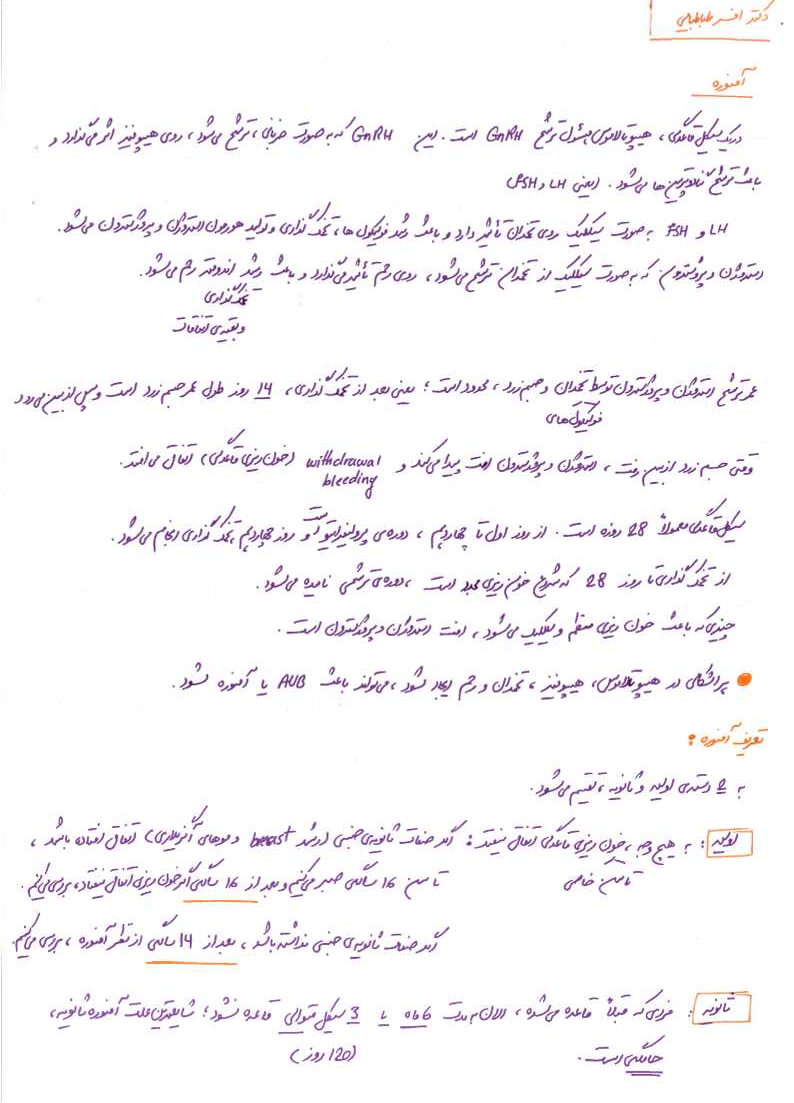 دکتر افسر طباطبایی
آمنوره
در یک سیکل قاعدگی، هیپوتالاموس مسئول ترشح GnRH است. این GnRH که به صورت ضربانی، ترشح می‌شود، روی هیپوفیز اثر می‌گذارد و
باعث ترشح گنادوتروپین‌ها می‌شود. (یعنی LH و FSH)
LH و FSH به صورت سیکلیک روی تخمدان تأثیر دارد و باعث رشد فولیکول‌ها، تخمک‌گذاری و تولید هورمون استروژن و پروژسترون می‌شود.
استروژن و پروژسترون که به صورت سیکلیک از تخمدان ترشح می‌شود، روی رحم تأثیر می‌گذارد و باعث رشد اندومتر رحم می‌شود.
تخمک‌گذاری
و بقیه‌ی اتفاقات
عمر ترشح استروژن و پروژسترون توسط تخمدان و جسم زرد، محدود است؛ یعنی بعد از تخمک‌گذاری، 14 روز طول عمر جسم زرد است و سپس از بین می‌رود
فولیکول‌های
وقتی جسم زرد از بین رفت، استروژن و پروژسترون افت پیدا می‌کند و withdrawal (خون‌ریزی قاعدگی) اتفاق می‌افتد.
bleeding
سیکل قاعدگی معمولاً 28 روزه است. از روز اول تا چهاردهم، دوره‌ی پرولیفراتیو است و روز چهاردهم، تخمک‌گذاری انجام می‌شود.
از تخمک‌گذاری تا روز 28 که شروع خون‌ریزی مجدد است، دوره‌ی ترشحی نامیده می‌شود.
چیزی که باعث خون‌ریزی منظم و سیکلیک می‌شود، افت استروژن و پروژسترون است.
هر اشکالی در هیپوتالاموس، هیپوفیز، تخمدان و رحم ایجاد شود، می‌تواند باعث AUB یا آمنوره شود.
تعریف آمنوره :
به 2 دسته‌ی اولیه و ثانویه، تقسیم می‌شود.
اولیه : به هیچ وجه، خون‌ریزی قاعدگی اتفاق نیفتد : اگر صفات ثانویه‌ی جنسی (رشد breast و موهای آگزیلاری) اتفاق افتاده باشد،
تا سن خاصی
تا سن 16 سالگی صبر می‌کنیم و بعد از 16 سالگی اگر خون‌ریزی اتفاق نیفتاد، بررسی می‌کنیم.
اگر صفات ثانویه‌ی جنسی نداشته باشد، بعد از 14 سالگی از نظر آمنوره، بررسی می‌کنیم.
ثانویه : فردی که قبلاً قاعده می‌شده، الان به مدت 6 ماه یا 3 سیکل متوالی قاعده نشود؛ شایع‌ترین علت آمنوره ثانویه،
(120 روز)
حاملگی است.